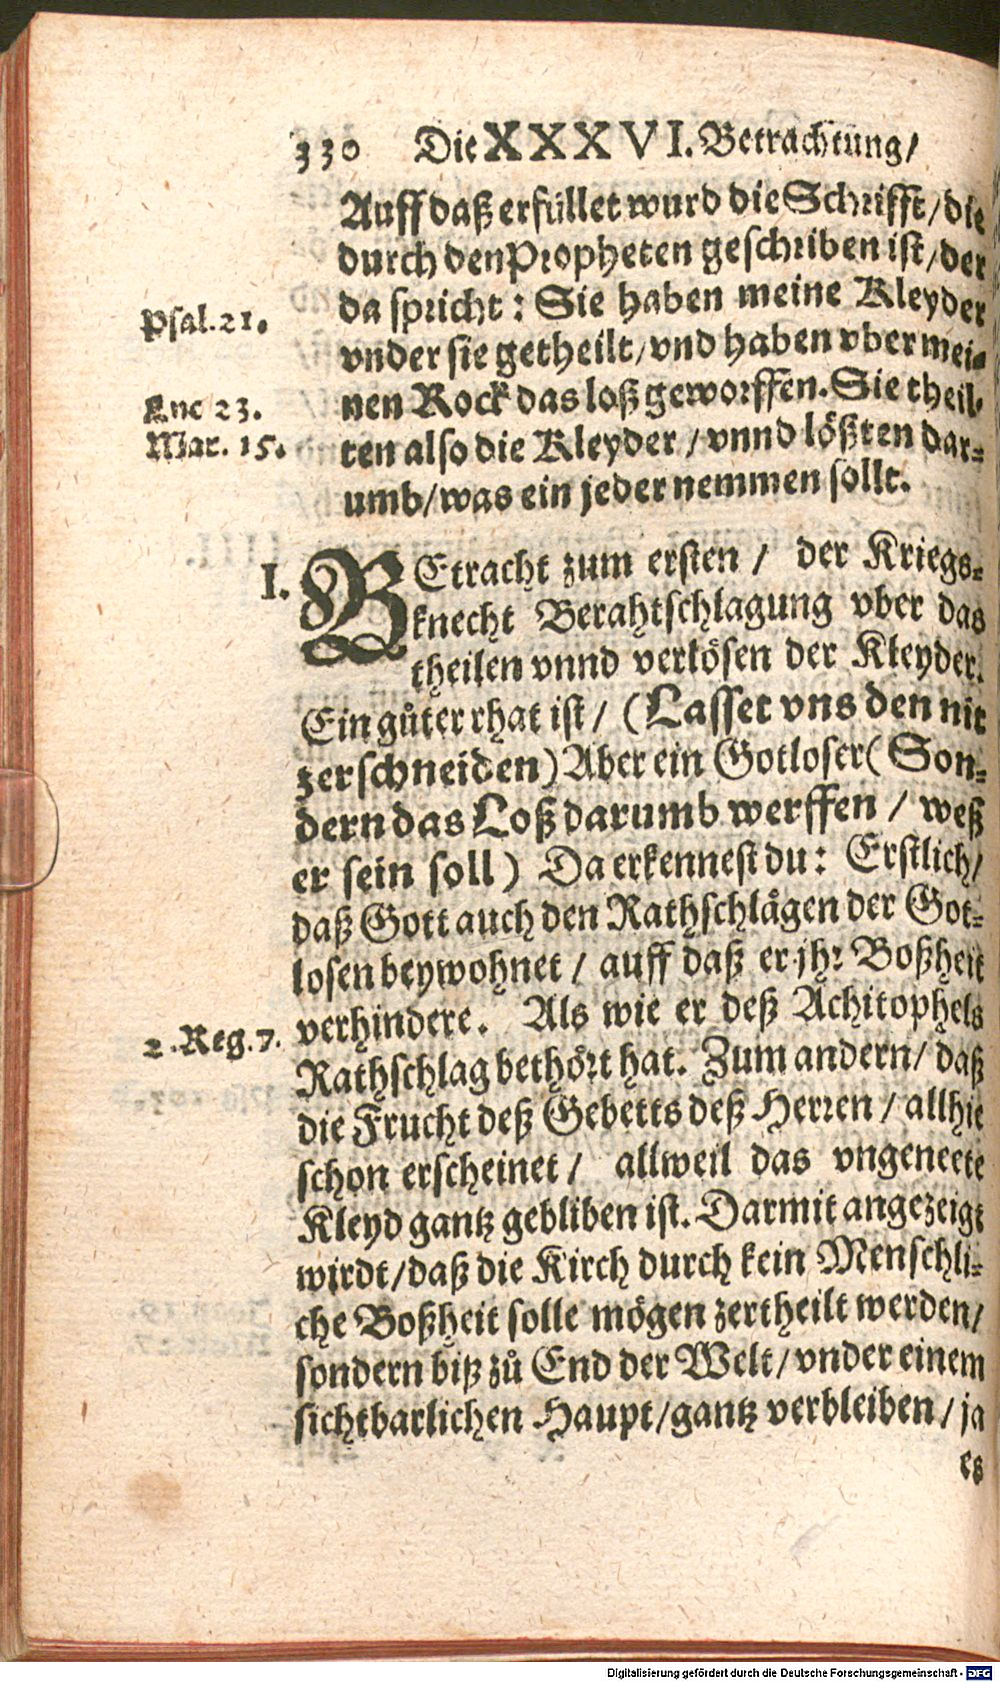 330 Die XXXVI. Betrachtung/
Auff daß erfüllet wurd die Schrifft/die
durch den Propheten geschriben ist/der
da spricht: Sie haben meine Kleyder
Psal. 21.
vnder sie getheilt/vnd haben vber mei-
nen Rock das loß geworffen. Sie theil-
Luc 23.
ten also die Kleyder/vnnd lößten dar-
Mar. 15.
umb/was ein jeder nemmen sollt.
I. BEtracht zum ersten/ der Kriegs-
knecht Berahtschlagung vber das
theilen vnnd verlösen der Kleyder.
Ein gůter rhat ist/ (Lasset vns den nit
zerschneiden) Aber ein Gotloser (Son-
dern das Loß darumb werffen/ weß
er sein soll) Da erkennest du: Erstlich/
daß Gott auch den Rathschlägen der Got-
losen beywohnet/ auff daß er jhr Boßheit
verhindere. Als wie er deß Achitophels
2. Reg. 7.
Rathschlag bethört hat. Zum andern/ daß
die Frucht deß Gebetts deß Herren/ allhie
schon erscheinet/ allweil das vngeneete
Kleyd gantz gebliben ist. Darmit angezeigt
wirdt/daß die Kirch durch kein Menschli-
che Boßheit solle mögen zertheilt werden/
sondern biß zů End der Welt/vnder einem
sichtbarlichen Haupt/gantz verbleiben/ja
es
Digitalisierung gefördert durch die Deutsche Forschungsgemeinschaft - DFG